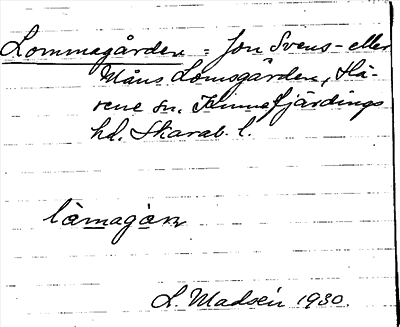 Lommagården = Jon Svens- eller
Måns Lomsgården, Hä-
rene sn. Kinnefjärdings
hd. Skarab. l.
låmagäɳ
L. Madsén 1930.